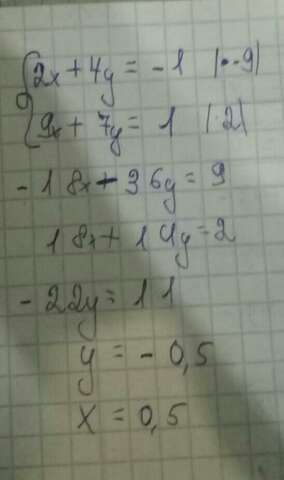 {2x + 4y = -1 |·-9|
9x + 7y = 1 |·2|
-18x - 36y = 9
18x + 14y = 2
-22y = 11
y = -0,5
x = 0,5